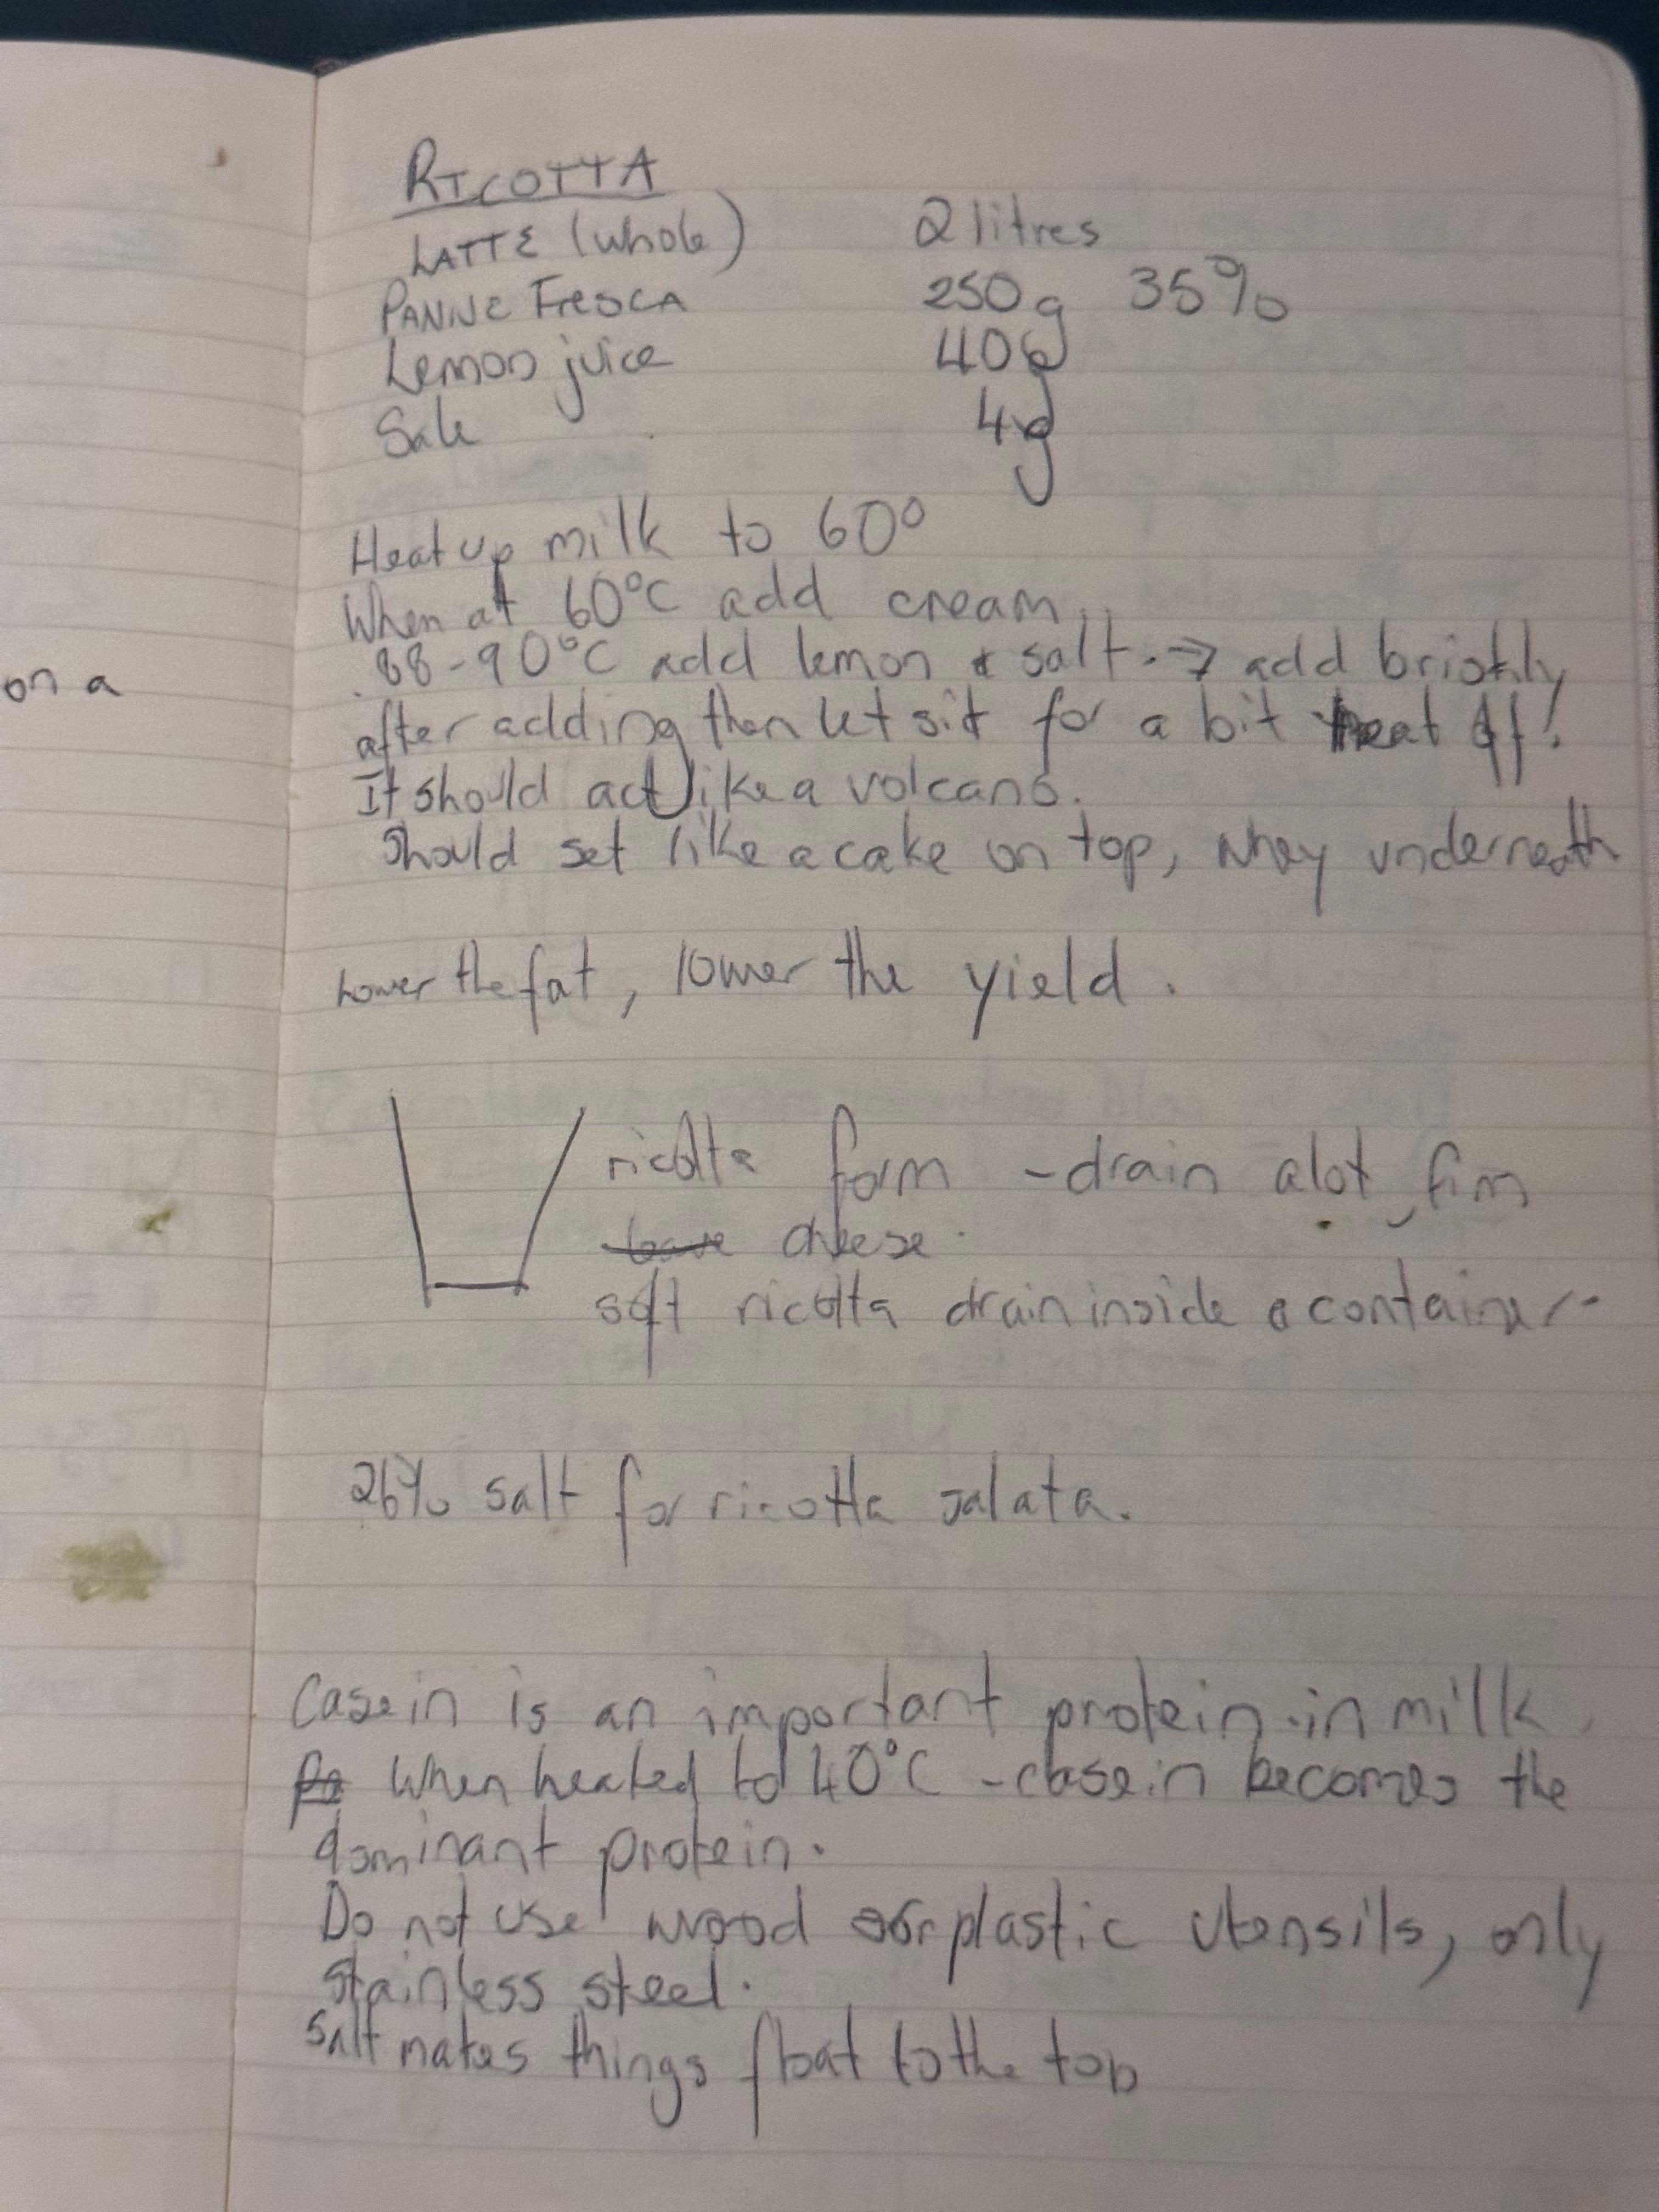 on a
RICOTTA
LATTE (whole) 2 litres
PANNE FRESCA 250g 35%
Lemon juice 40g
Sale 4g
Heat up milk to 60°
When at 60°C add cream.
88-90°C add lemon & salt. → add briskly
after adding then let sit for a bit heat off!
It should act like a volcano.
Should set like a cake on top, whey underneath
Lower the fat, lower the yield.
ricotta form - drain alot, firm
cheese.
soft ricotta drain inside a container.
26% salt for ricotta salata.
Casein is an important protein in milk.
When heated to 40°C - casein becomes the
dominant protein.
Do not use wood or plastic utensils, only
stainless steel.
Salt makes things float to the top